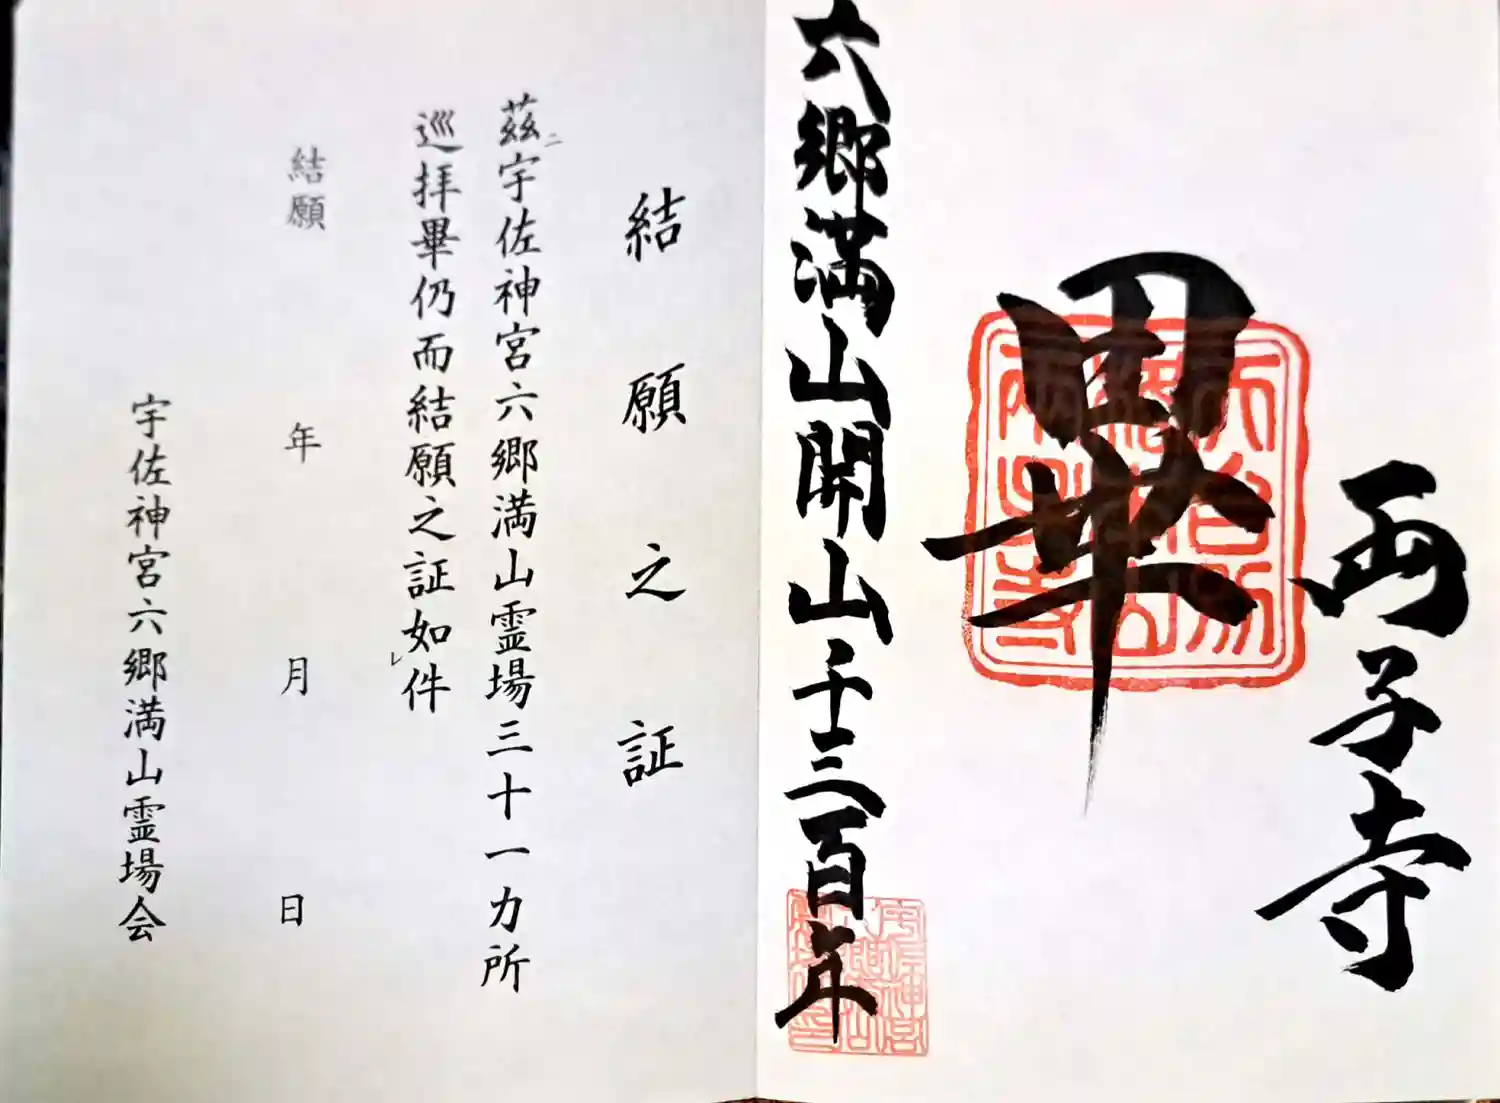 両子寺
畢
六郷満山開山千三百年
結願之証
茲ニ宇佐神宮六郷満山霊場三十一カ所
巡拝畢仍而結願之証如レ件
結願　年　月　日
宇佐神宮六郷満山霊場会